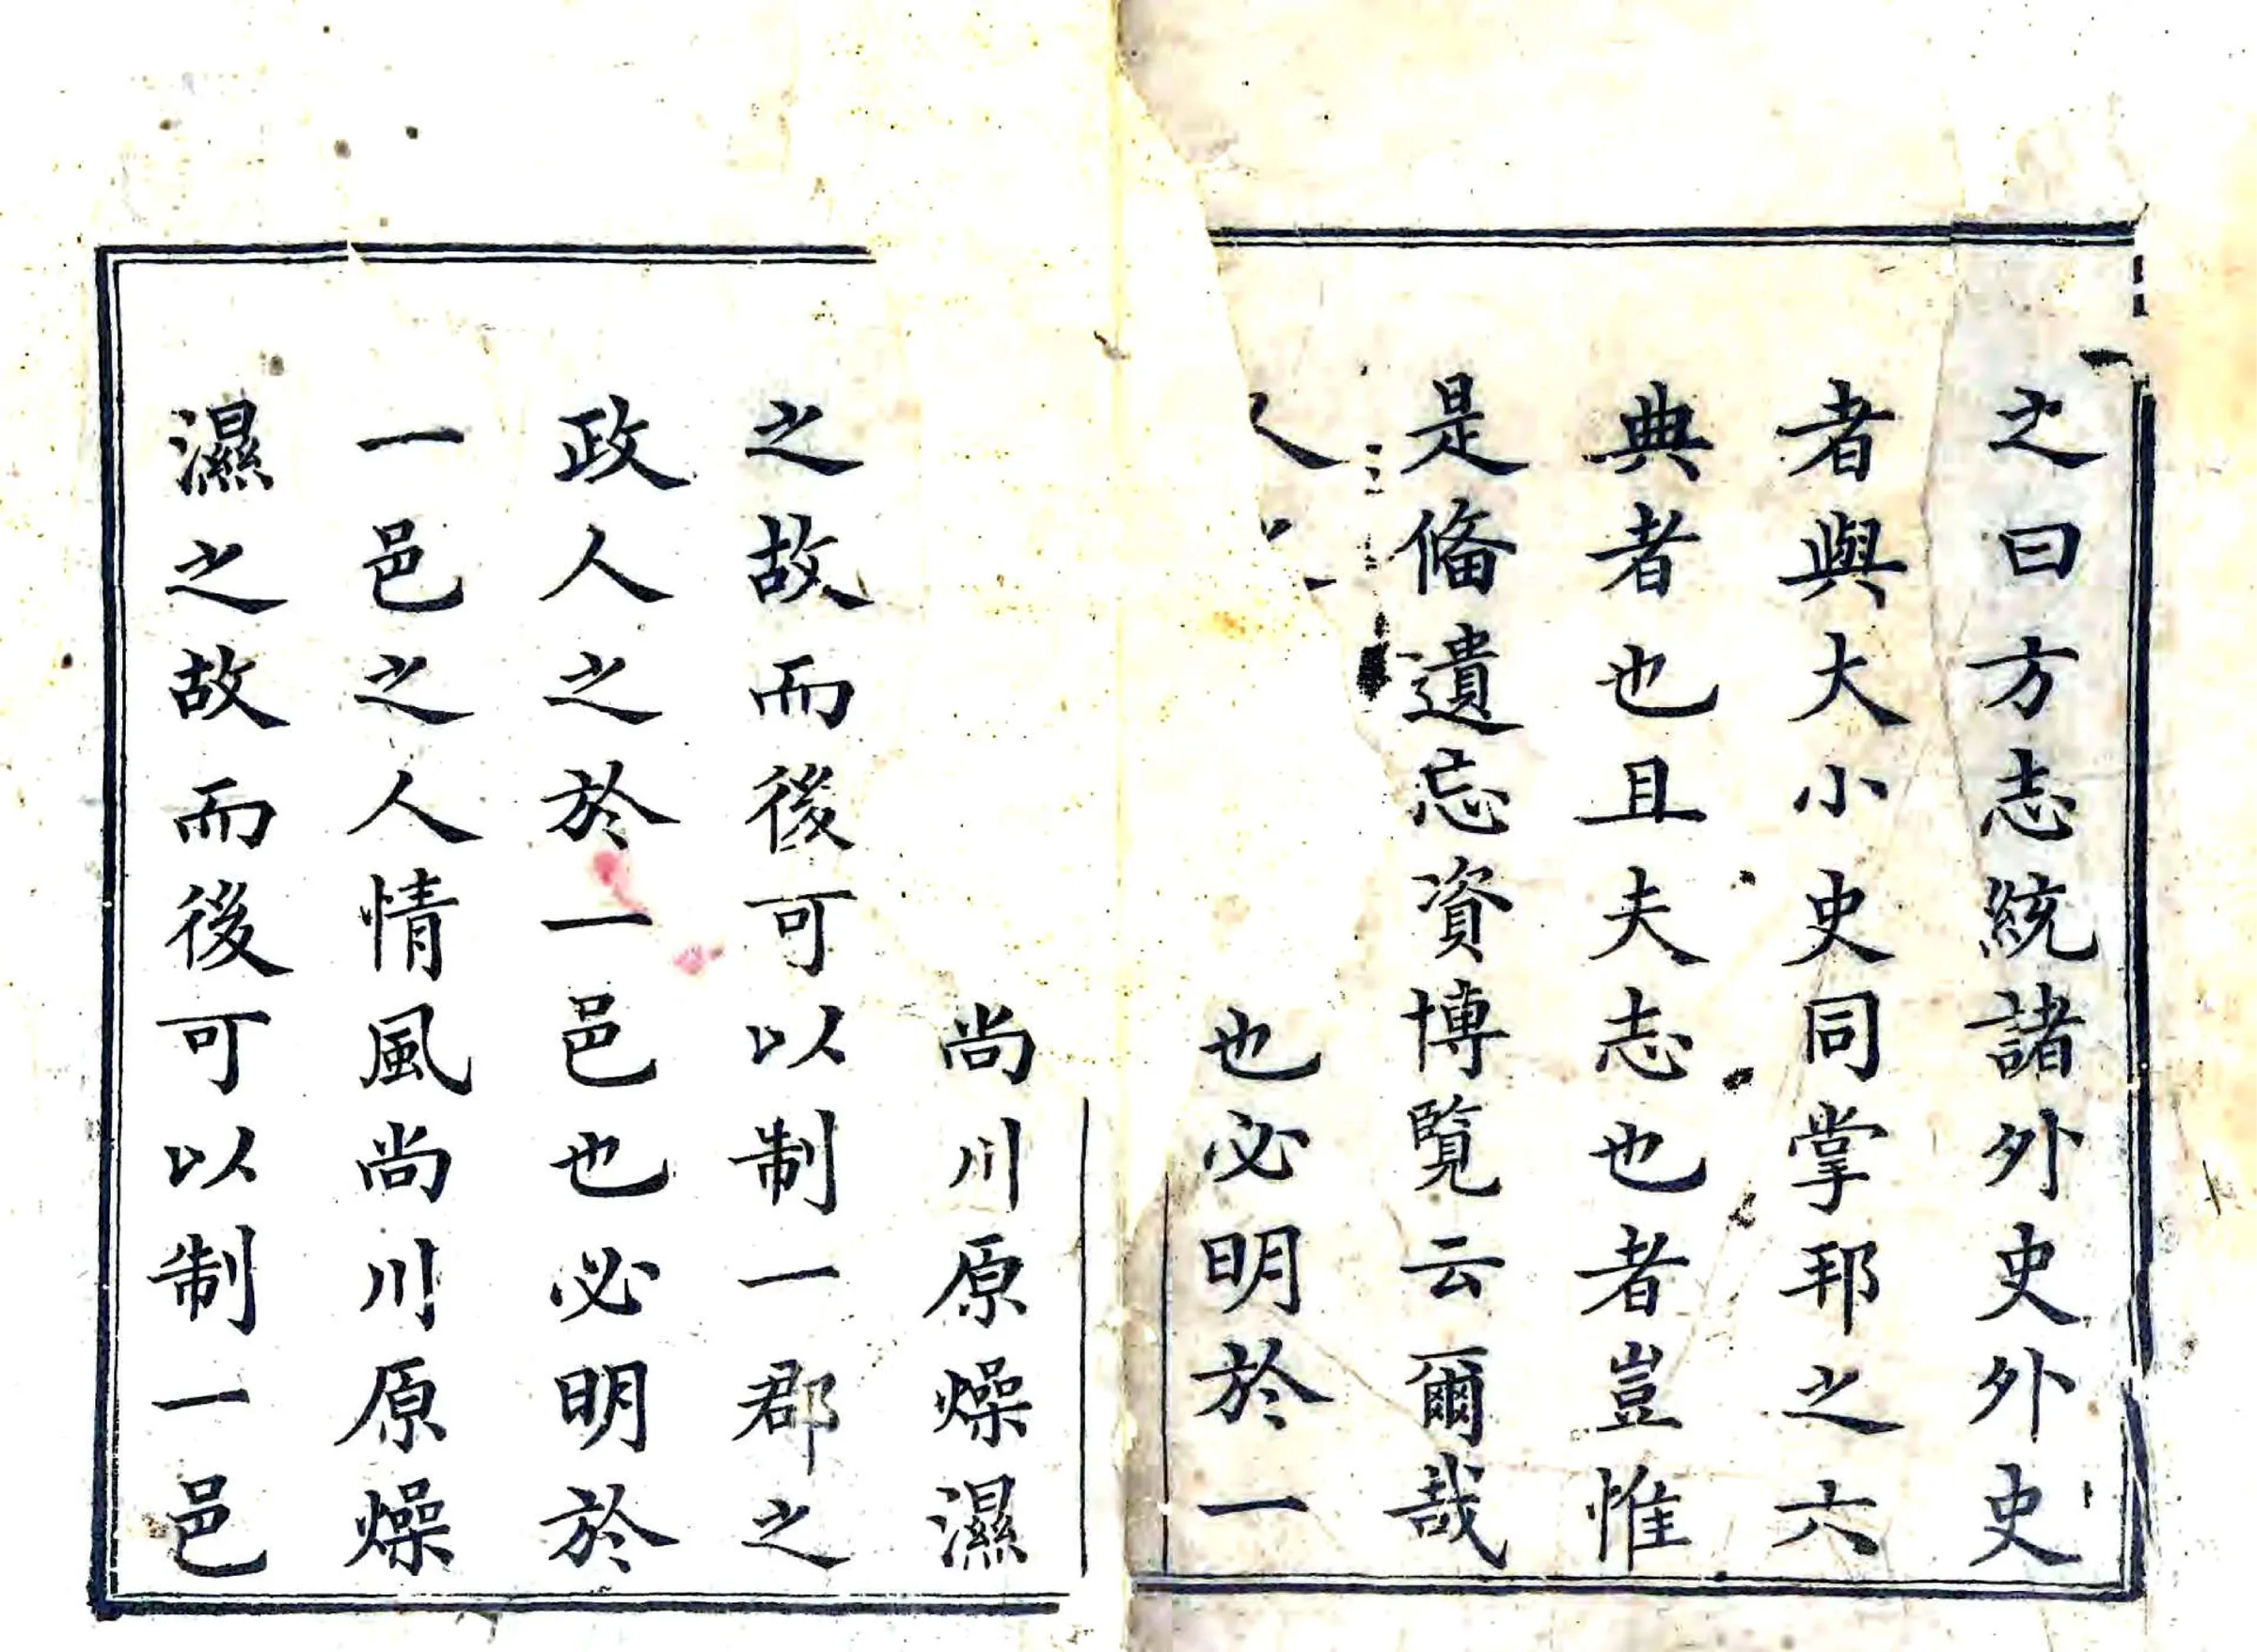 之曰方志統諸外史外史
者與大小史同掌邦之六
典者也且夫志也者豈惟
是俻遺忘資博覽云爾哉
也必明於一
尚川原燥濕
之故而後可以制一郡之
政人之於一邑也必明於
一邑之人情風尚川原燥
濕之故而後可以制一邑